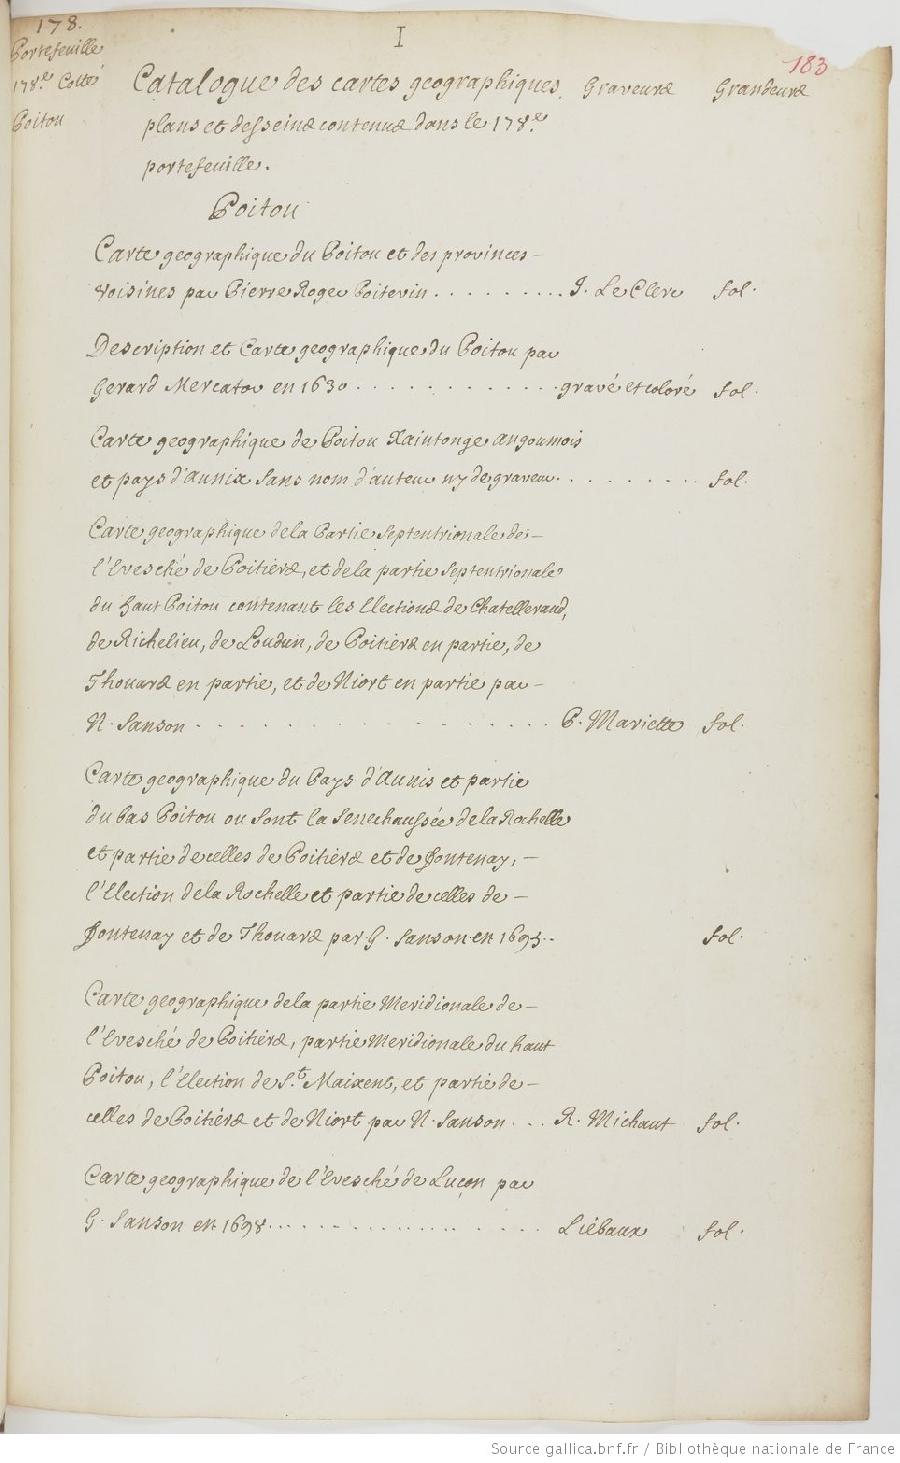 178.
Portefeuille
178.e Cotté
Poitou
I
183
Catalogue des cartes geographiques, Graveurs Grandeurs
plans et desseins contenus dans le 178.e
portefeuille.
Poitou
Carte geographique du Poitou et des provinces
voisines par Pierre Roger Poitevin . . . . . . . . . . J. Le Clerc fol.
Description et Carte geographique du Poitou par
Gerard Mercator en 1630 . . . . . . . . . . . . . gravé et coloré fol.
Carte geographique de Poitou Xaintonge angoumois
et pays d'aunix sans nom d'auteur ny de graveur. . . . . . . . . fol.
Carte geographique de la Partie Septentrionale de
l'Evesché de Poitiers, et de la partie septentrionale
du haut Poitou contenant les Elections de Chatelleraud,
de Richelieu, de Loudun, de Poitiers en partie, de
Thouars en partie, et de Niort en partie par
N. Sanson . . . . . . . . . . . . . . . . . . . P. Mariette fol.
Carte geographique du Pays d'Aunis et partie
du bas Poitou ou sont la Senechaussée de la Rochelle
et partie de celles de Poitiers et de fontenay,
l'Election de la Rochelle et partie de celles de
fontenay et de Thouars par G. Sanson en 1695.. fol.
Carte geographique de la partie Meridionale de
l'Evesché de Poitiers, partie Meridionale du haut
Poitou, l'Election de S.t Maixent, et partie de
celles de Poitiers et de Niort par N. Sanson . . . R. Michaut fol.
Carte geographique de l'Evesché de Luçon par
G. Sanson en 1698 . . . . . . . . . . . . . . . . Liébaux fol.
Source gallica.bnf.fr / Bibliothèque nationale de France